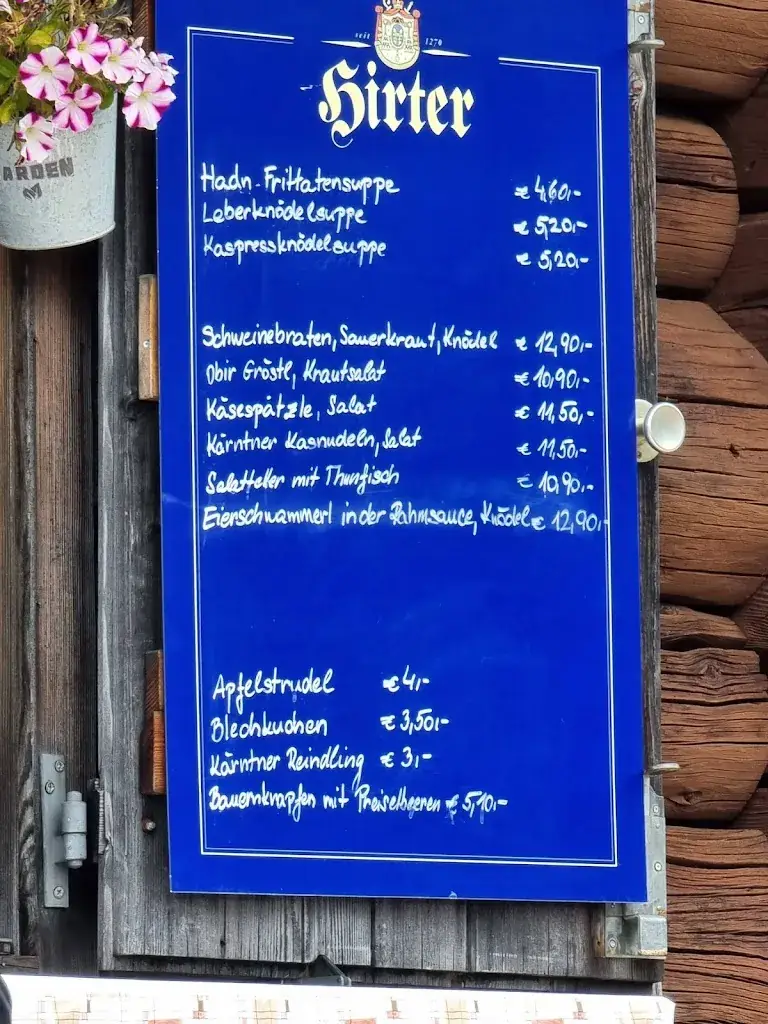 ARDEN
seit 1270
Hirter
Hadn-Frittatensuppe € 4,60,-
Leberknödelsuppe € 5,20,-
Kaspressknödelsuppe € 5,20,-
Schweinebraten, Sauerkraut, Knödel € 12,90,-
Obir Gröstl, Krautsalat € 10,90,-
Käsespätzle, Salat € 11,50,-
Kärntner Kasnudeln, Salat € 11,50,-
Salatteller mit Thunfisch € 10,90,-
Eierschwammerl in der Rahmsauce, Knödel € 12,90,-
Apfelstrudel € 4,-
Blechkuchen € 3,50,-
Kärntner Reindling € 3,-
Bauernkrapfen mit Preiselbeeren € 5,10,-